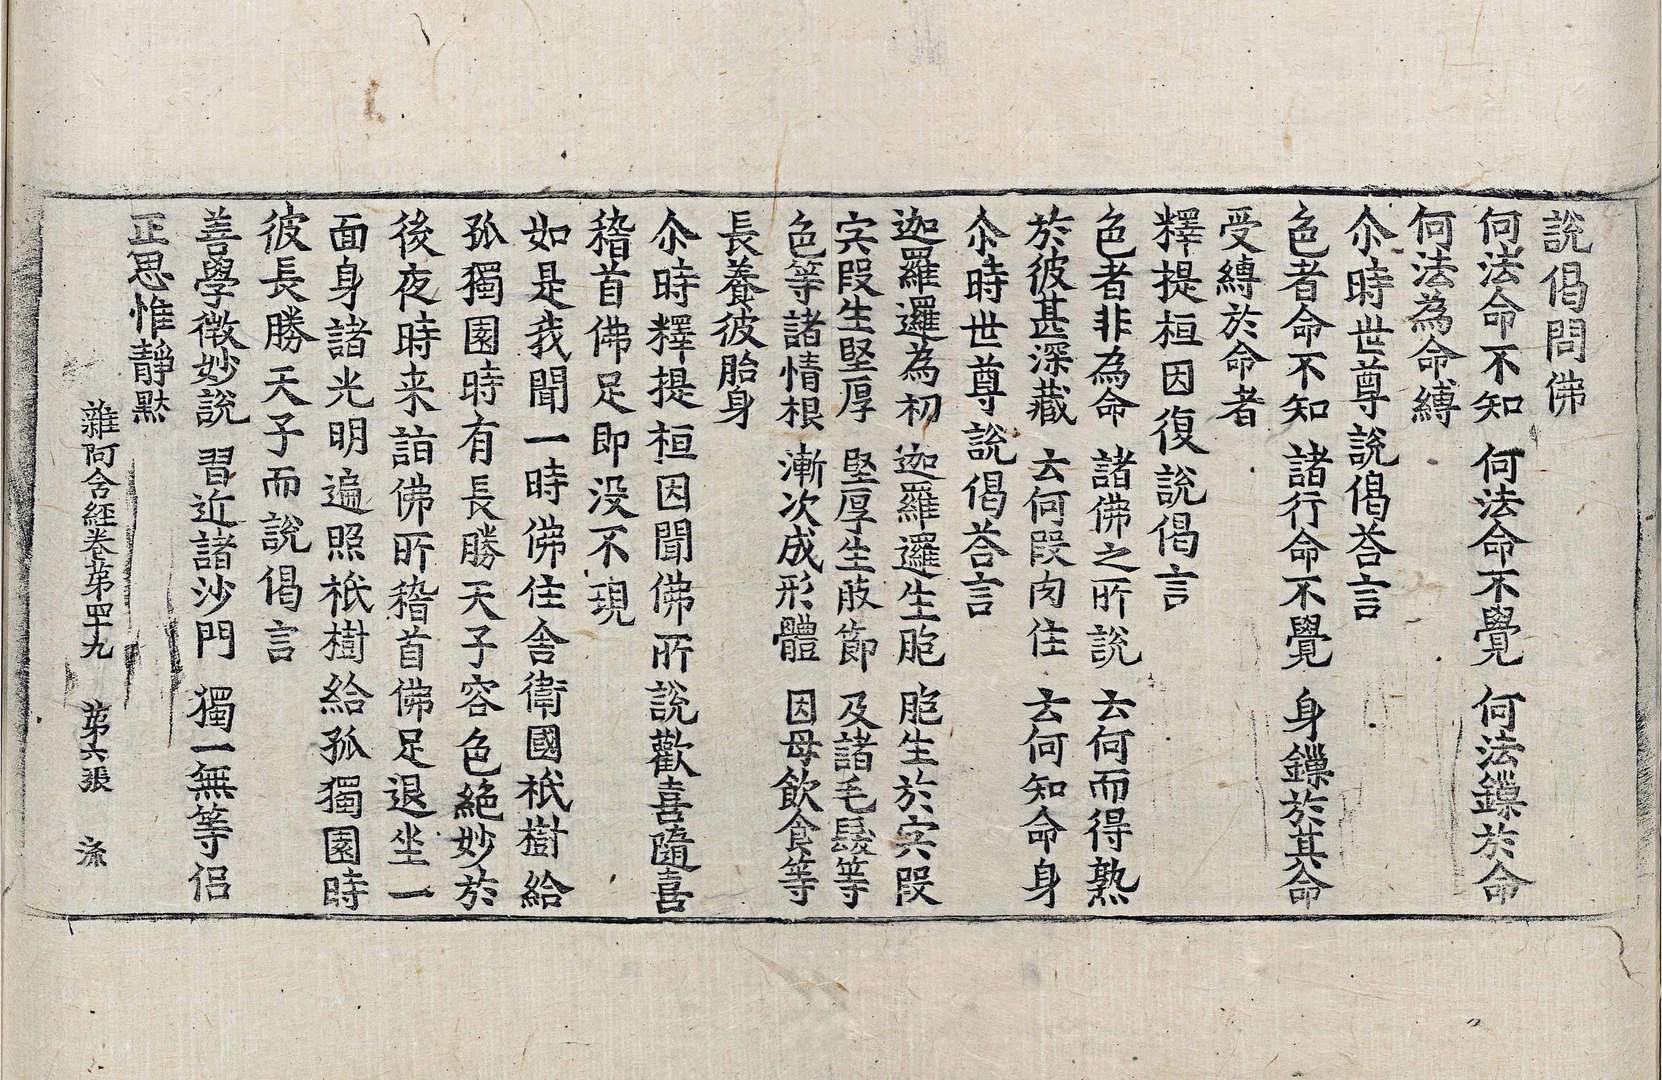 說偈問佛
何法命不知 何法命不覺 何法鏁於命
何法為命縛
尒時世尊說偈荅言
色者命不知 諸行命不覺 身鏁於其命
受縛於命者
釋提桓因復說偈言
色者非為命 諸佛之所說 云何而得熟
於彼甚深藏 云何段肉住 云何知命身
尒時世尊說偈荅言
迦羅邏為初 迦羅邏生胞 胞生於宍段
宍段生堅厚 堅厚生肢節 及諸毛髮等
色等諸情根 漸次成形體 因母飲食等
長養彼胎身
尒時釋提桓因聞佛所說歡喜隨喜
稽首佛足即没不現
如是我聞一時佛住舍衛國祇樹給
孤獨園時有長勝天子容色絶妙於
後夜時来詣佛所稽首佛足退坐一
面身諸光明遍照祇樹給孤獨園時
彼長勝天子而說偈言
善學微妙說 習近諸沙門 獨一無等侶
正思惟靜黙
雜阿含経卷苐四十九 苐六張 㳂